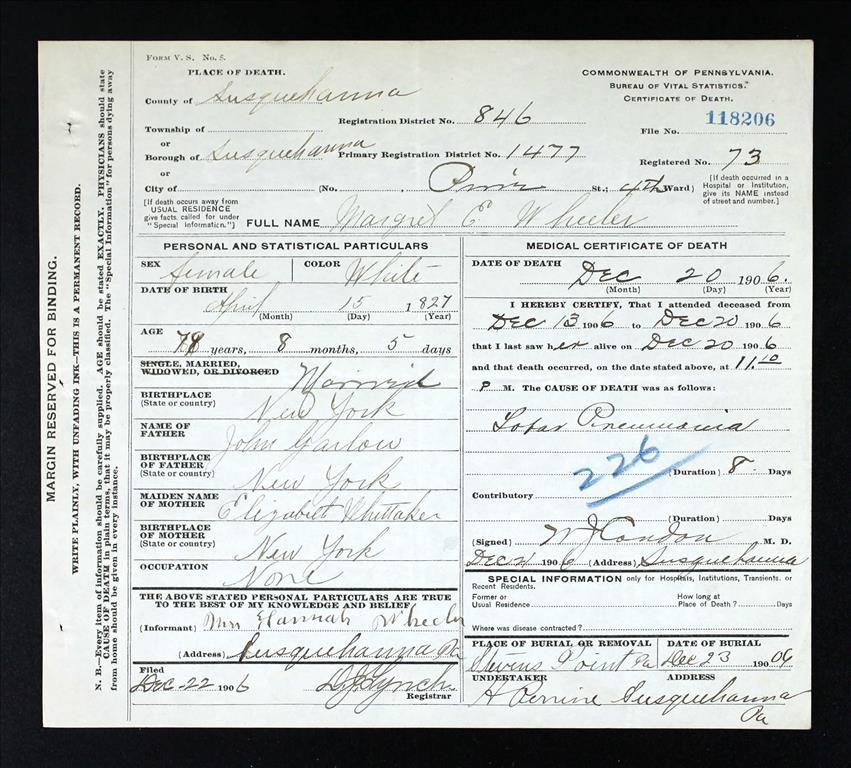 FORM V. S. No. 5.
PLACE OF DEATH.
County of Susquehanna
Township of
or
Borough of Susquehanna
or
City of
[If death occurs away from USUAL RESIDENCE give facts called for under "Special Information."]
Registration District No. 846
Primary Registration District No. 1477
(No. , St.; 4th Ward)
COMMONWEALTH OF PENNSYLVANIA.
BUREAU OF VITAL STATISTICS.
CERTIFICATE OF DEATH.
File No. 118206
Registered No. 73
[If death occurred in a Hospital or Institution, give its NAME instead of street and number.]
FULL NAME Margret E Wheeler
MARGIN RESERVED FOR BINDING.
WRITE PLAINLY, WITH UNFADING INK—THIS IS A PERMANENT RECORD.
N. B.—Every item of information should be carefully supplied. AGE should be stated EXACTLY. PHYSICIANS should state
CAUSE OF DEATH in plain terms, that it may be properly classified. The "Special Information" for persons dying away
from home should be given in every instance.
PERSONAL AND STATISTICAL PARTICULARS
SEX female
COLOR White
DATE OF BIRTH
April 15 1827
(Month) (Day) (Year)
AGE
79 years, 8 months, 5 days
SINGLE, MARRIED,
WIDOWED, OR DIVORCED Married
BIRTHPLACE
(State or country) New York
NAME OF
FATHER John Garlow
BIRTHPLACE
OF FATHER
(State or country) New York
MAIDEN NAME
OF MOTHER Elizabeth Whittaker
BIRTHPLACE
OF MOTHER
(State or country) New York
OCCUPATION
None
THE ABOVE STATED PERSONAL PARTICULARS ARE TRUE
TO THE BEST OF MY KNOWLEDGE AND BELIEF
(Informant) Mrs Hannah Wheeler
(Address) Susquehanna Pa
Filed
Dec-22 1906 Lynch
Registrar
MEDICAL CERTIFICATE OF DEATH
DATE OF DEATH
Dec 20 1906.
(Month) (Day) (Year)
I HEREBY CERTIFY, That I attended deceased from
Dec 13 1906 to Dec 20 1906
that I last saw her alive on Dec 20 1906
and that death occurred, on the date stated above, at 11.10
P M. The CAUSE OF DEATH was as follows:
Lobar Pneumonia
226
(Duration) 8 Days
Contributory
(Duration) Days
(Signed) W J Condon M. D.
Dec 21 1906 (Address) Susquehanna
SPECIAL INFORMATION only for Hospitals, Institutions, Transients, or
Recent Residents.
Former or
Usual Residence
How long at
Place of Death? Days
Where was disease contracted?
PLACE OF BURIAL OR REMOVAL
Stevens Point Pa
DATE OF BURIAL
Dec 23 1906
UNDERTAKER
H Perrine
ADDRESS
Susquehanna
Pa